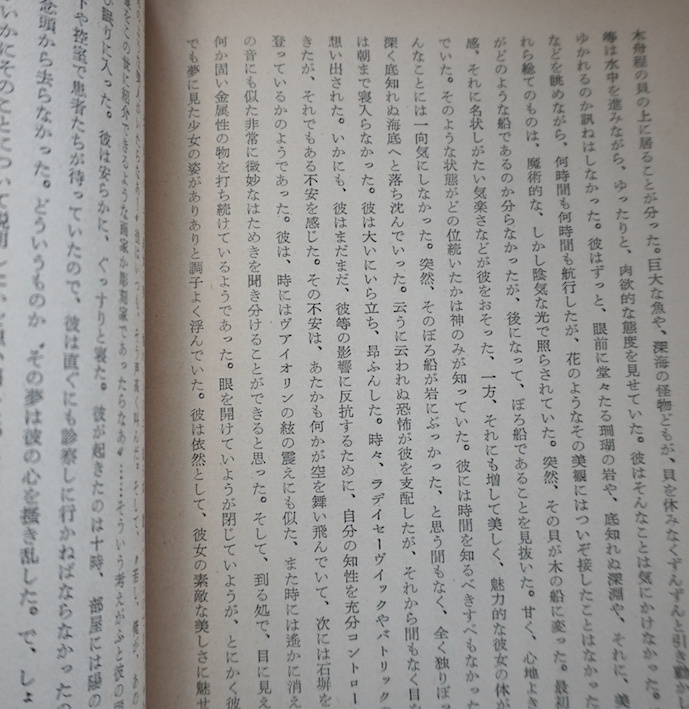 木舟程の貝の上に居ることが分った。巨大な魚や、深海の怪物どもが、貝を休みなくずんずんと引き動かし
等は水中を進みながら、ゆったりと、肉欲的な態度を見せていた。彼はそんなことは気にかけなかった。
ゆかれるのか訊ねはしなかった。彼はずっと、眼前に堂々たる珊瑚の岩や、底知れぬ深淵や、それに、美
などを眺めながら、何時間も何時間も航行したが、花のようなその美観にはついぞ接したことはなかった
れら総てのものは、魔術的な、しかし陰気な光で照らされていた。突然、その貝が木の船に変った。最初
がどのような船であるのか分らなかったが、後になって、ぼろ船であることを見抜いた。甘く、心地よき
感、それに名状しがたい気楽さなどが彼をおそった、一方、それにも増して美しく、魅力的な彼女の体が
でいた。そのような状態がどの位続いたかは神のみが知っていた。彼には時間を知るべきすべもなかった
んなことには一向気にしなかった。突然、そのぼろ船が岩にぶっかった、と思う間もなく、全く独りぼっ
深く底知れぬ海底へと落ち沈んでいった。云うに云われぬ恐怖が彼を支配したが、それから間もなく目を
は朝まで寝入らなかった。彼は大いにいら立ち、昂ふんした。時々、ラデイセーヴイックやパトリックの
想い出された。いかにも、彼はまだまだ、彼等の影響に反抗するために、自分の知性を充分コントロー
きたが、それでもある不安を感じた。その不安は、あたかも何かが空を舞い飛んでいて、次には石塀を
登っているかのようであった。彼は、時にはヴアイオリンの絃の震えにも似た、また時には遙かに消え
の音にも似た非常に微妙なはためきを聞き分けることができると思った。そして、到る処で、目に見え
何か固い金属性の物を打ち続けているようであった。眼を開けていようが閉じていようが、とにかく彼
でも夢に見た少女の姿がありありと調子よく浮んでいた。彼は依然として、彼女の素敵な美しさに魅せ
をこの世に紹介できるような画家か彫刻家であったらなあ。……そういう考えがふと彼の
眠りに入った。彼は安らかに、ぐっすりと寝た。彼が起きたのは十時、部屋には陽の
や控室で患者たちが待っていたので、彼は直ぐにも診察しに行かねばならなかったの
念頭から去らなかった。どういうものか、その夢は彼の心を掻き乱した。で、しょ